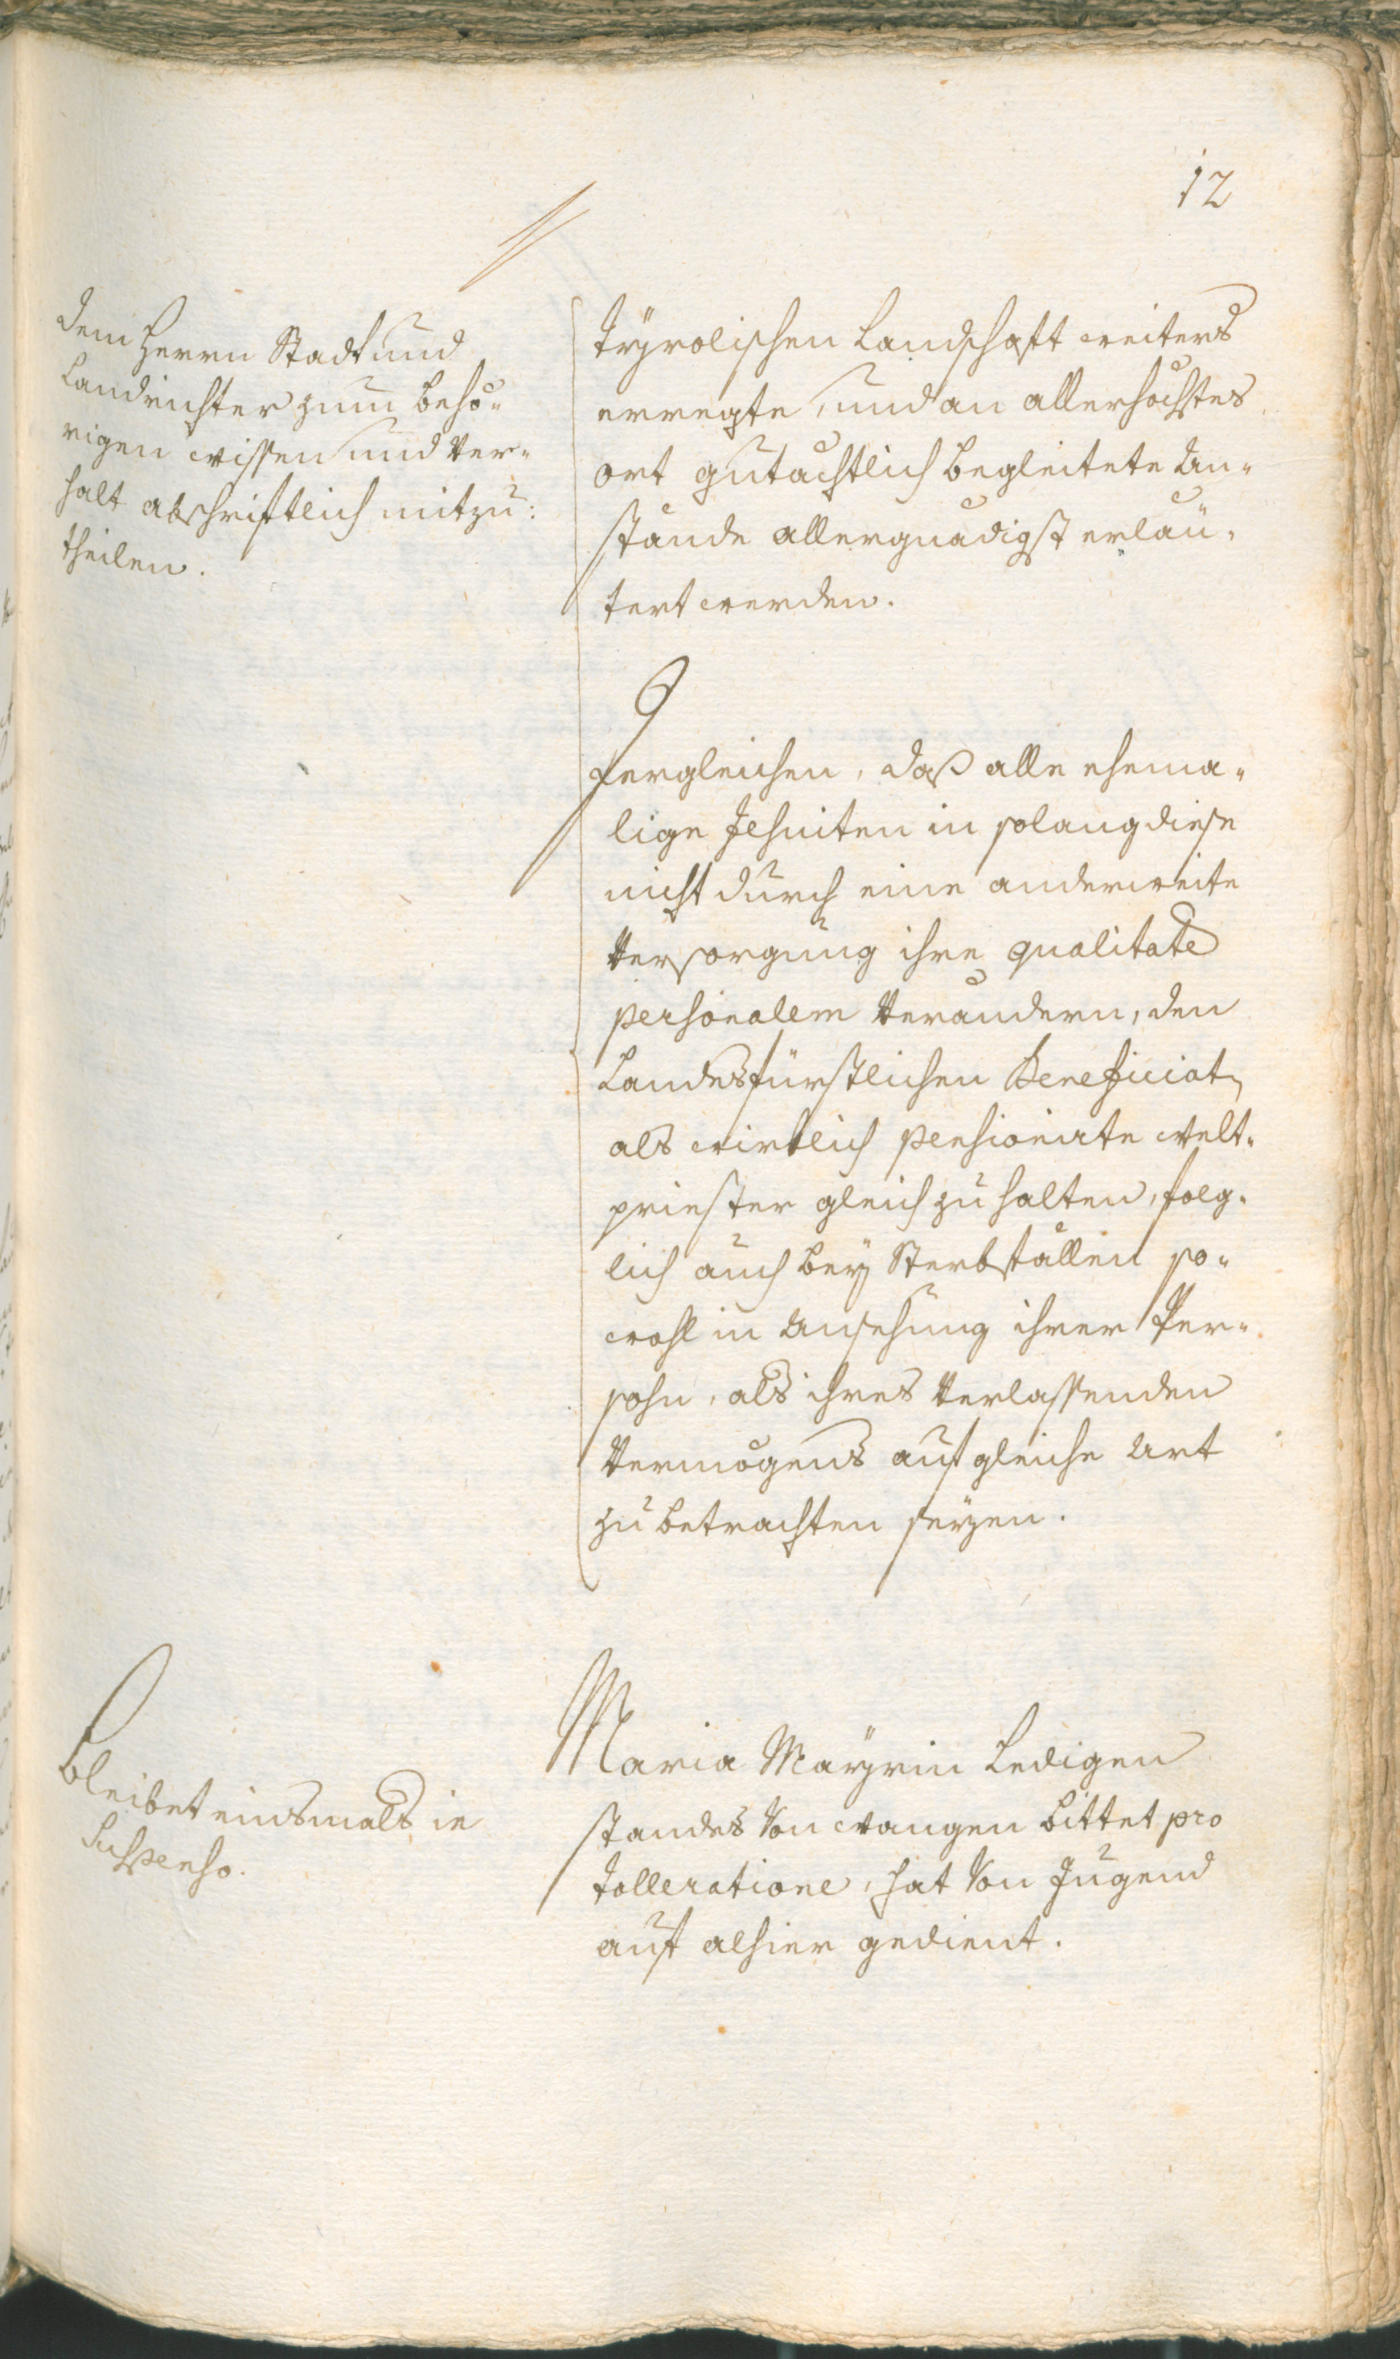 12
dem Herrn Stadt und
Landrichter zum behö-
rigen wissen und Ver-
halt abschriftlich mitzu:
theilen.
Tÿrolischen Landschaft weiters
erregte, und an allerhöchstes
ort gutächtlich begleitete An-
stände allergnädigst erläu-
tert werden.
Dergleichen, daß alle ehema-
lige Jesuiten in solang diese
nicht durch eine anderweite
Versorgung ihre qualitate
personalem Verändern, den
Landesfürstlichen Beneficiat,
als wirklich pensionirte Welt-
priester gleich zu halten, folg-
lich auch beÿ Sterbfällen so-
wohl in Ansehung ihrer Per-
sohn, als ihres Verlassenden
Vermögens auf gleiche Art
zu betrachten seÿen.
Bleibet einsmals in
Suspenso.
Maria Maÿrin Ledigen
standes Von Wangen bittet pro
Tolleratione, hat Von Jugend
auf alhier gedient.